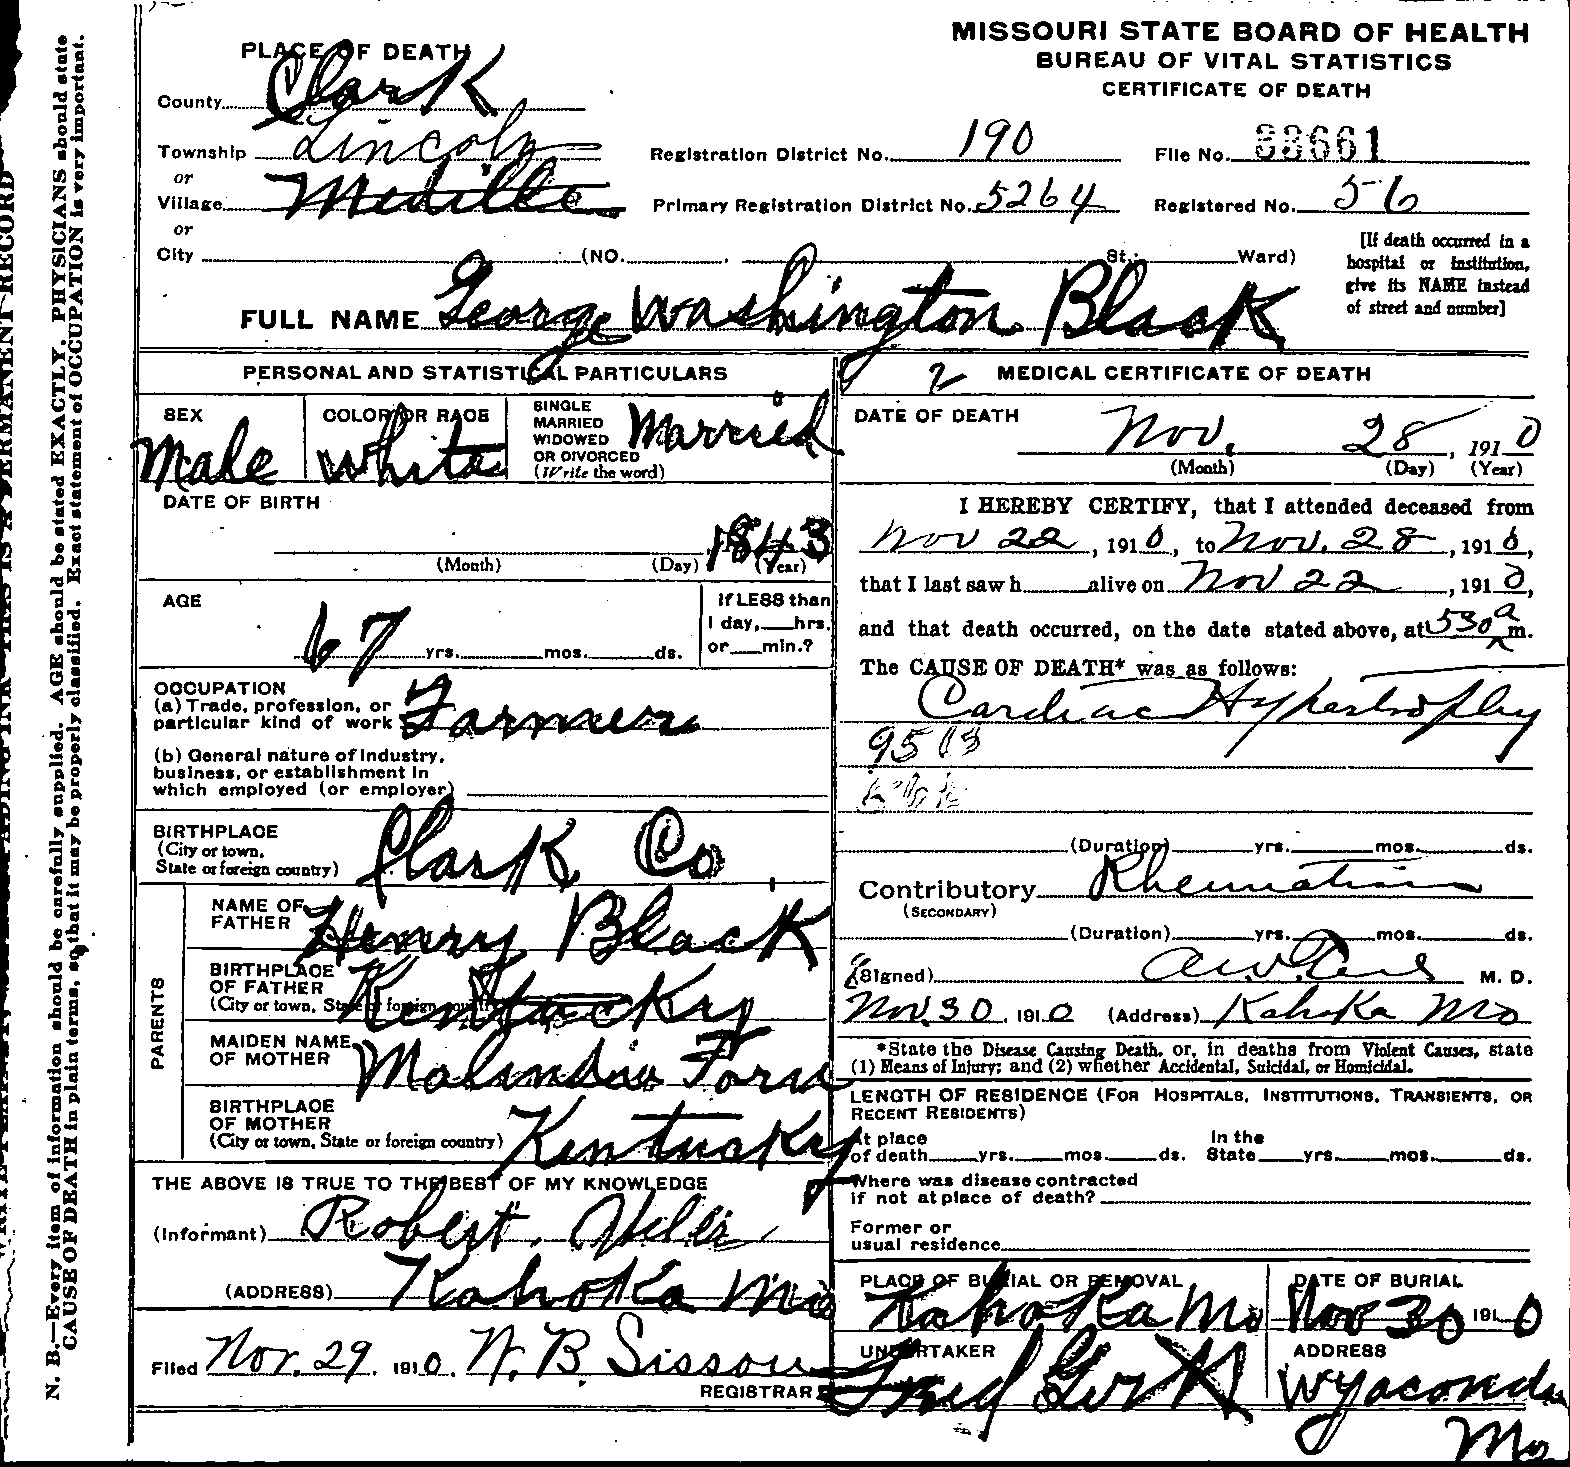 MISSOURI STATE BOARD OF HEALTH
BUREAU OF VITAL STATISTICS
CERTIFICATE OF DEATH
PLACE OF DEATH
County Clark
Township Lincoln
or
Village Medille
or
City (NO. St.; Ward)
Registration District No. 190
File No. 33661
Primary Registration District No. 5264
Registered No. 56
[If death occurred in a
hospital or institution,
give its NAME instead
of street and number]
FULL NAME George Washington Black
PERSONAL AND STATISTICAL PARTICULARS
SEX
Male
COLOR OR RACE
White
SINGLE
MARRIED
WIDOWED
OR DIVORCED
(Write the word)
Married
DATE OF BIRTH
1843
(Month) (Day) (Year)
AGE
67 yrs. mos. ds.
If LESS than
1 day, hrs.
or min.?
OCCUPATION
(a) Trade, profession, or
particular kind of work Farmer
(b) General nature of industry,
business, or establishment in
which employed (or employer)
BIRTHPLACE
(City or town,
State or foreign country) Clark Co
PARENTS
NAME OF
FATHER Henry Black
BIRTHPLACE
OF FATHER
(City or town, State or foreign country) Kentucky
MAIDEN NAME
OF MOTHER Malinda
BIRTHPLACE
OF MOTHER
(City or town, State or foreign country) Kentucky
THE ABOVE IS TRUE TO THE BEST OF MY KNOWLEDGE
(Informant) Robert
(ADDRESS) Kahoka Mo
Filed Nov. 29. 1910. Sisson
REGISTRAR
2 MEDICAL CERTIFICATE OF DEATH
DATE OF DEATH
Nov. 28, 1910
(Month) (Day) (Year)
I HEREBY CERTIFY, that I attended deceased from
Nov 22, 1910, to Nov. 28, 1910,
that I last saw h alive on Nov 22, 1910,
and that death occurred, on the date stated above, at 530 a m.
The CAUSE OF DEATH* was as follows:
Cardiac Hypertrophy
(Duration) yrs. mos. ds.
Contributory Rheumatism
(SECONDARY)
(Duration) yrs. mos. ds.
(Signed) M. D.
Nov. 30, 1910 (Address) Kahoka Mo
*State the Disease Causing Death, or, in deaths from Violent Causes, state
(1) Means of Injury; and (2) whether Accidental, Suicidal, or Homicidal.
LENGTH OF RESIDENCE (FOR HOSPITALS, INSTITUTIONS, TRANSIENTS, OR
RECENT RESIDENTS)
At place
of death yrs. mos. ds.
In the
State yrs. mos. ds.
Where was disease contracted
if not at place of death?
Former or
usual residence
PLACE OF BURIAL OR REMOVAL
Kahoka Mo
DATE OF BURIAL
Nov 30 1910
UNDERTAKER
Fred
ADDRESS
Wyaconda
Mo
N. B.—Every item of information should be carefully supplied. AGE should be stated EXACTLY. PHYSICIANS should state
CAUSE OF DEATH in plain terms, so that it may be properly classified. Exact statement of OCCUPATION is very important.